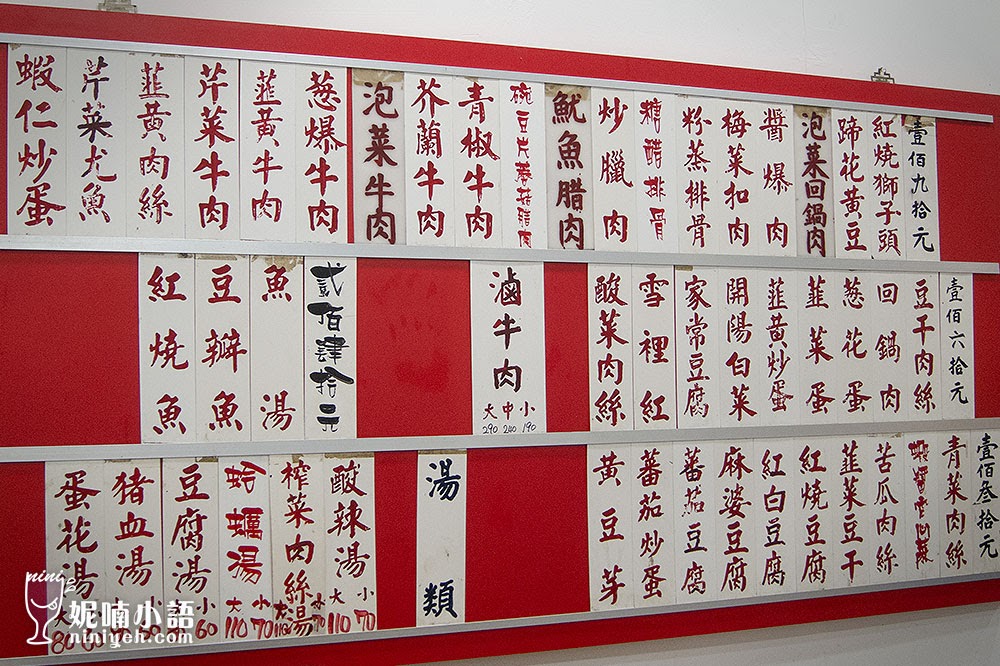 壹佰九拾元
紅燒獅子頭
蹄花黃豆
泡菜回鍋肉
醬爆肉
梅菜扣肉
粉蒸排骨
糖醋排骨
炒臘肉
魷魚腊肉
碗豆片蘑菇腊肉
青椒牛肉
芥蘭牛肉
泡菜牛肉
葱爆牛肉
韮黃牛肉
芹菜牛肉
韮黃肉絲
芹菜尤魚
蝦仁炒蛋
壹佰六拾元
豆干肉絲
回鍋肉
葱花蛋
韮菜蛋
韮黃炒蛋
開陽白菜
家常豆腐
雪裡紅
酸菜肉絲
滷牛肉
大 中 小
290 240 190
貳佰肆拾元
魚湯
豆瓣魚
紅燒魚
壹佰叁拾元
青菜肉絲
苦瓜肉絲
韮菜豆干
紅燒豆腐
紅白豆腐
麻婆豆腐
蕃茄豆腐
蕃茄炒蛋
黃豆芽
湯類
酸辣湯
大 小
110 70
榨菜肉絲湯
大 小
110 70
蛤蠣湯
大 小
110 70
豆腐湯
小
60
猪血湯
蛋花湯
大
80
nini
妮喃小語
niniyeh.com